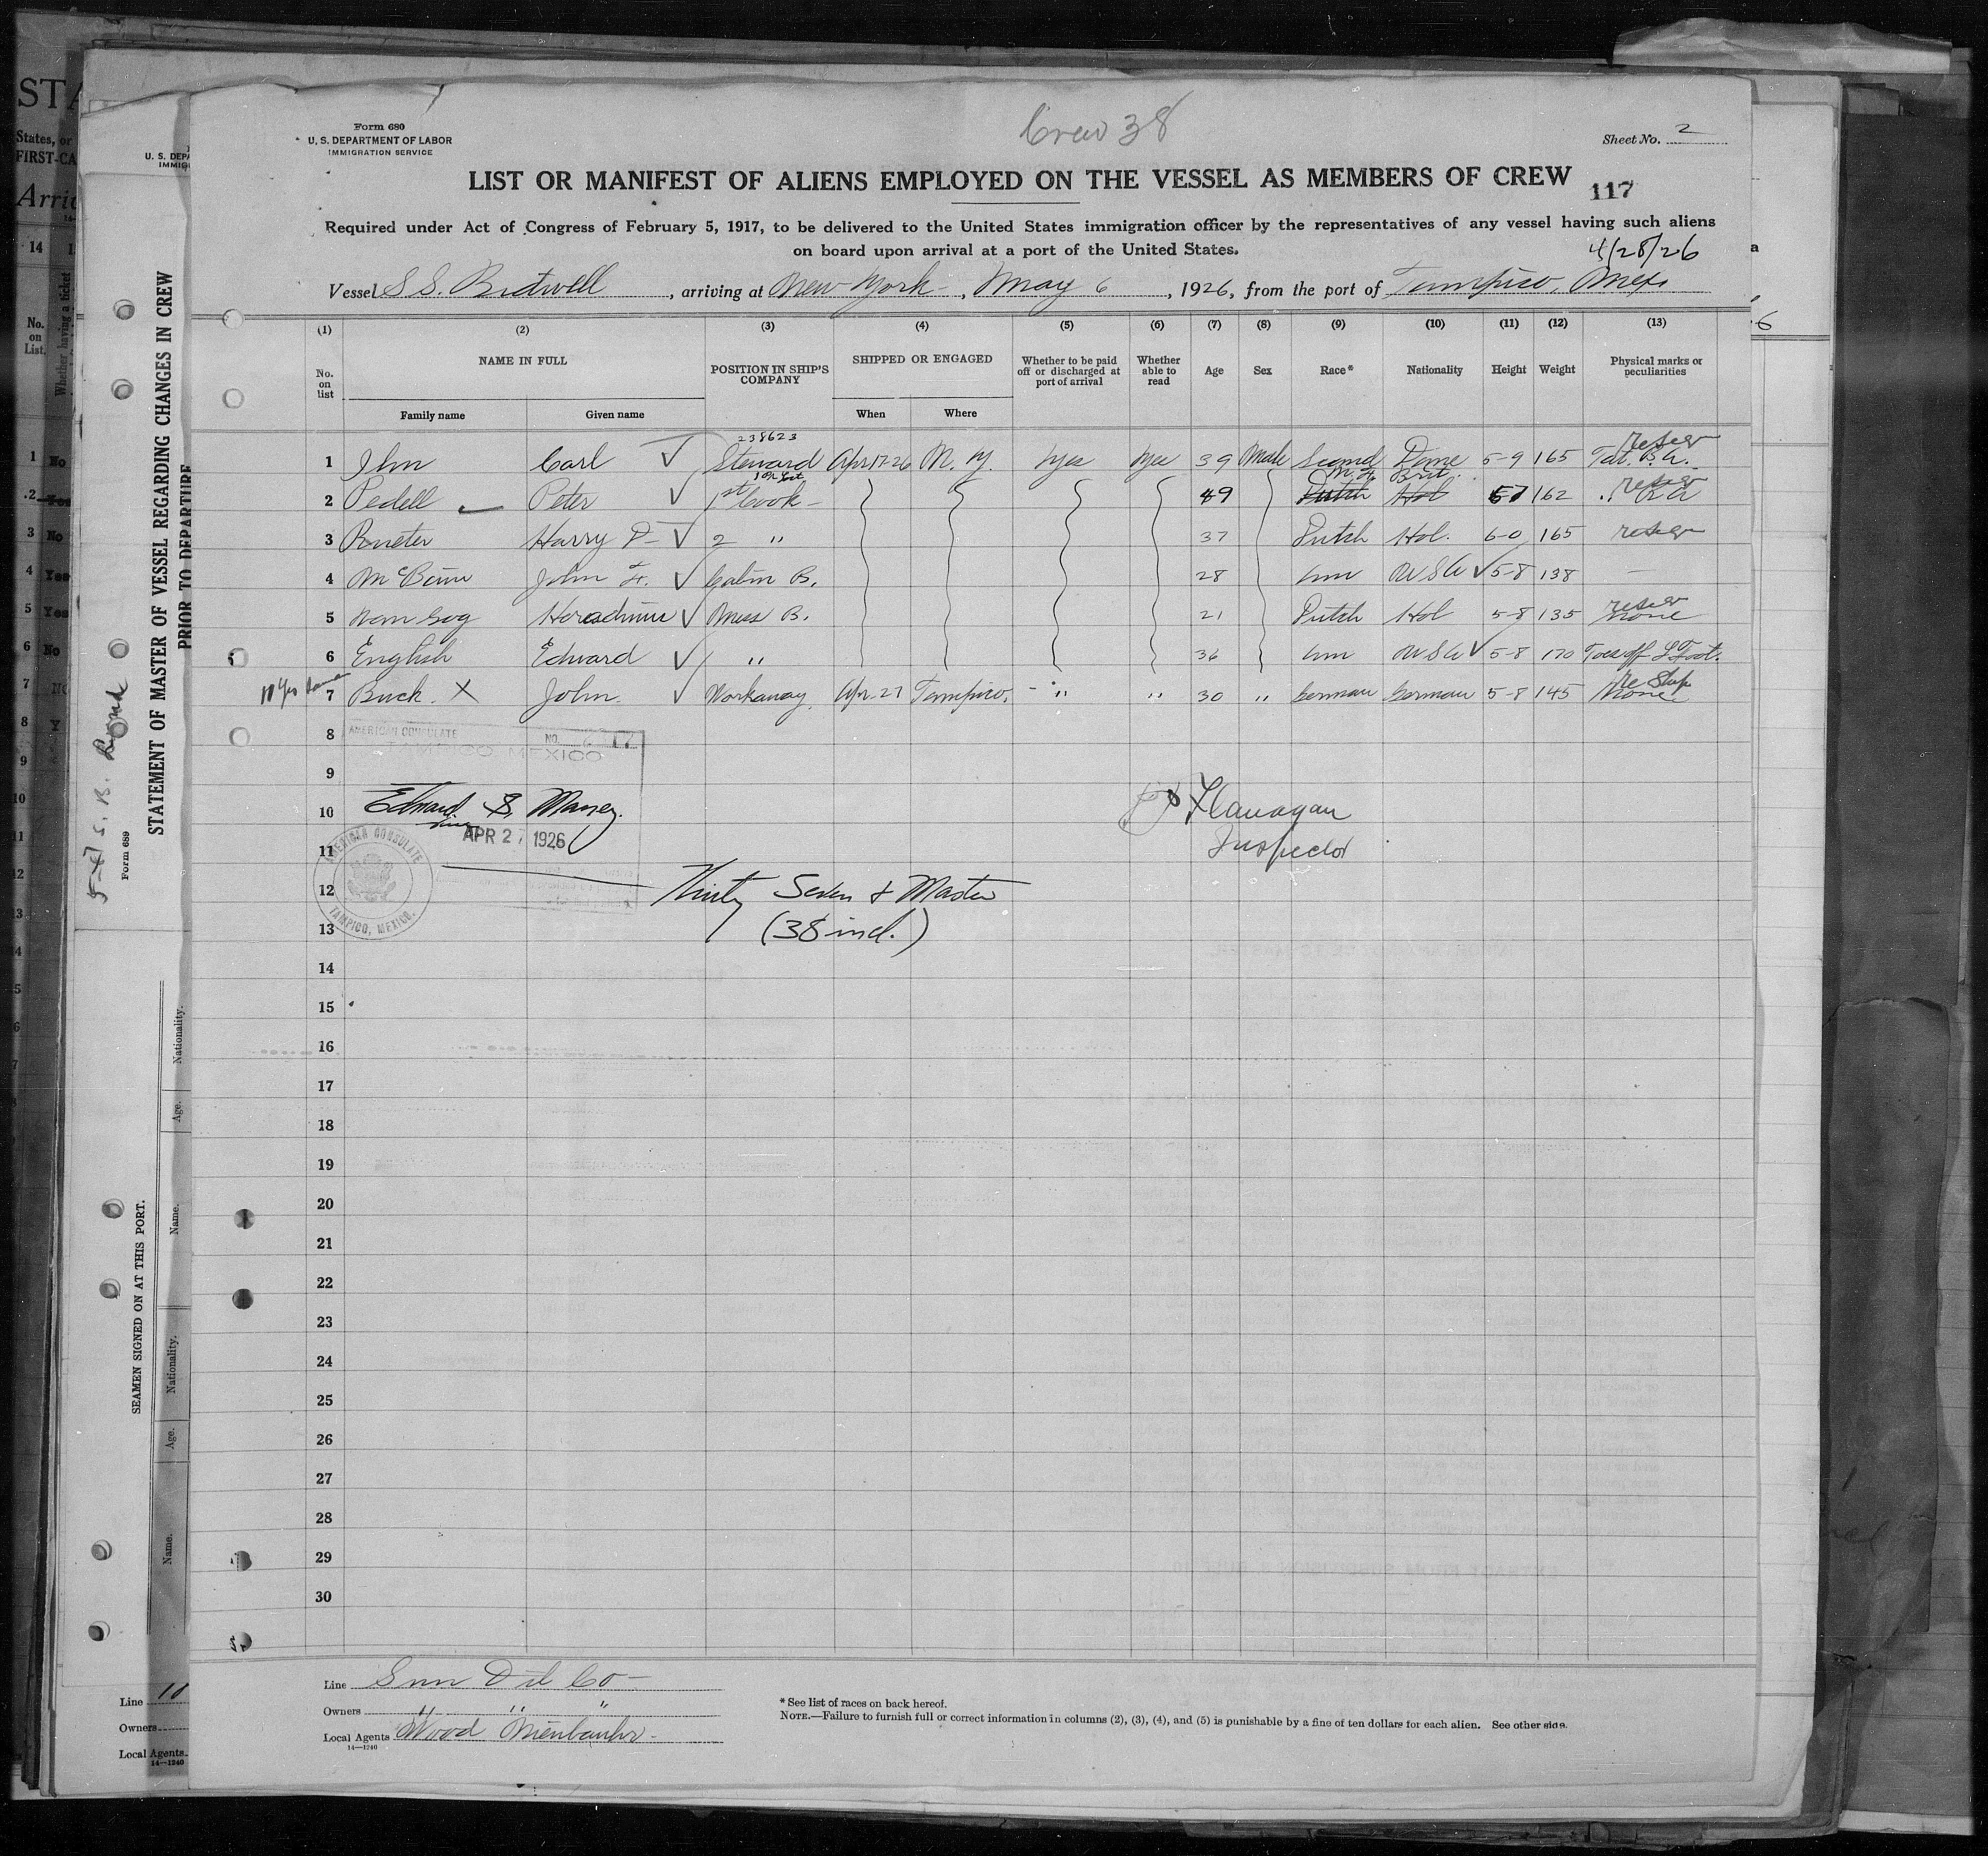 Form 680
U. S. DEPARTMENT OF LABOR
IMMIGRATION SERVICE
Crew 38
Sheet No. 2
LIST OR MANIFEST OF ALIENS EMPLOYED ON THE VESSEL AS MEMBERS OF CREW
117
Required under Act of Congress of February 5, 1917, to be delivered to the United States immigration officer by the representatives of any vessel having such aliens
on board upon arrival at a port of the United States.
4/28/26
Vessel S.S. Bidwell, arriving at New York, May 6, 1926, from the port of Tampico, Mex
(1) (2) (3) (4) (5) (6) (7) (8) (9) (10) (11) (12) (13)
No. on list
NAME IN FULL
Family name
Given name
POSITION IN SHIP'S COMPANY
SHIPPED OR ENGAGED
When
Where
Whether to be paid off or discharged at port of arrival
Whether able to read
Age
Sex
Race*
Nationality
Height
Weight
Physical marks or peculiarities
238623
1 Carl Steward Apr 17-26 N. Y. Yes Yes 39 Male Scand Dane 5-9 165 Tat.
2 Pedell Peter 1st Cook 49 Dutch Hol 162
3 Harry 2 " 37 Dutch Hol. 6-0 165
4 John F. Cabin B. 28 USA 5-8 138 —
5 Mess B. 21 Dutch Hol 5-8 135 None
6 English Edward " 36 USA 5-8 170 Toes off L Foot.
7 Buck X John Workaway Apr-27 Tampico. " " 30 " German German 5-8 145 None
8
AMERICAN CONSULATE
NO.
TAMPICO MEXICO
9
10
Edward S. Maney.
APR 27 1926
11
AMERICAN CONSULATE
TAMPICO, MEXICO.
Flanagan
Inspector
12
Thirty Seven & Master
13
(38 incl.)
14
15
16
17
18
19
20
21
22
23
24
25
26
27
28
29
30
Line Sun Oil Co
Owners " " "
Local Agents Wood
14—1240
* See list of races on back hereof.
NOTE.—Failure to furnish full or correct information in columns (2), (3), (4), and (5) is punishable by a fine of ten dollars for each alien. See other side.
STATEMENT OF MASTER OF VESSEL REGARDING CHANGES IN CREW
PRIOR TO DEPARTURE
Form 689
SEAMEN SIGNED ON AT THIS PORT.
Nationality.
Age.
Name.
Nationality.
Age.
Name.
Line 10
Owners
Local Agents
14—1240
States, or
FIRST-CA
No. on List.
Whether having a ticket